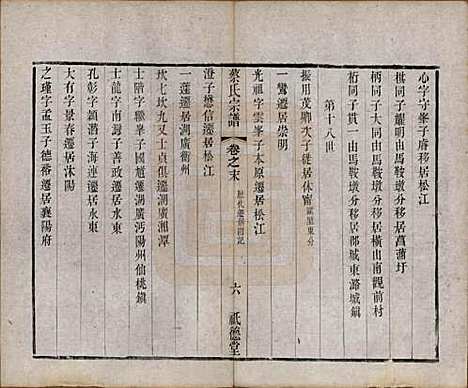 心字守峯子膺移居松江
棋同子耀明由馬鞍墩分移居菖蒲圩
柄同子 由馬鞍墩分移居橫山南觀前村
桁同子貫一由馬鞍墩分移居郡城東潞城鎮
第十八世
振用茂卿次子徙居休甯
一鸞遷居崇明
光祖字雲峯子本原遷居松江
蔡氏宗譜
卷之末
歷代遷徙附記
六
祇德堂
澄子懋信遷居松江
一蓮遷居湖廣衢州
坎七坎九又士貞俱遷湖廣湘潭
階字 峯子國禎遷湖廣沔陽州仙桃鎮
士龍字南海子善政遷居永東
孔彰字 潛子海連遷居永東
大有字景春遷居沭陽
之瑾字孟玉子德裕遷居襄陽府